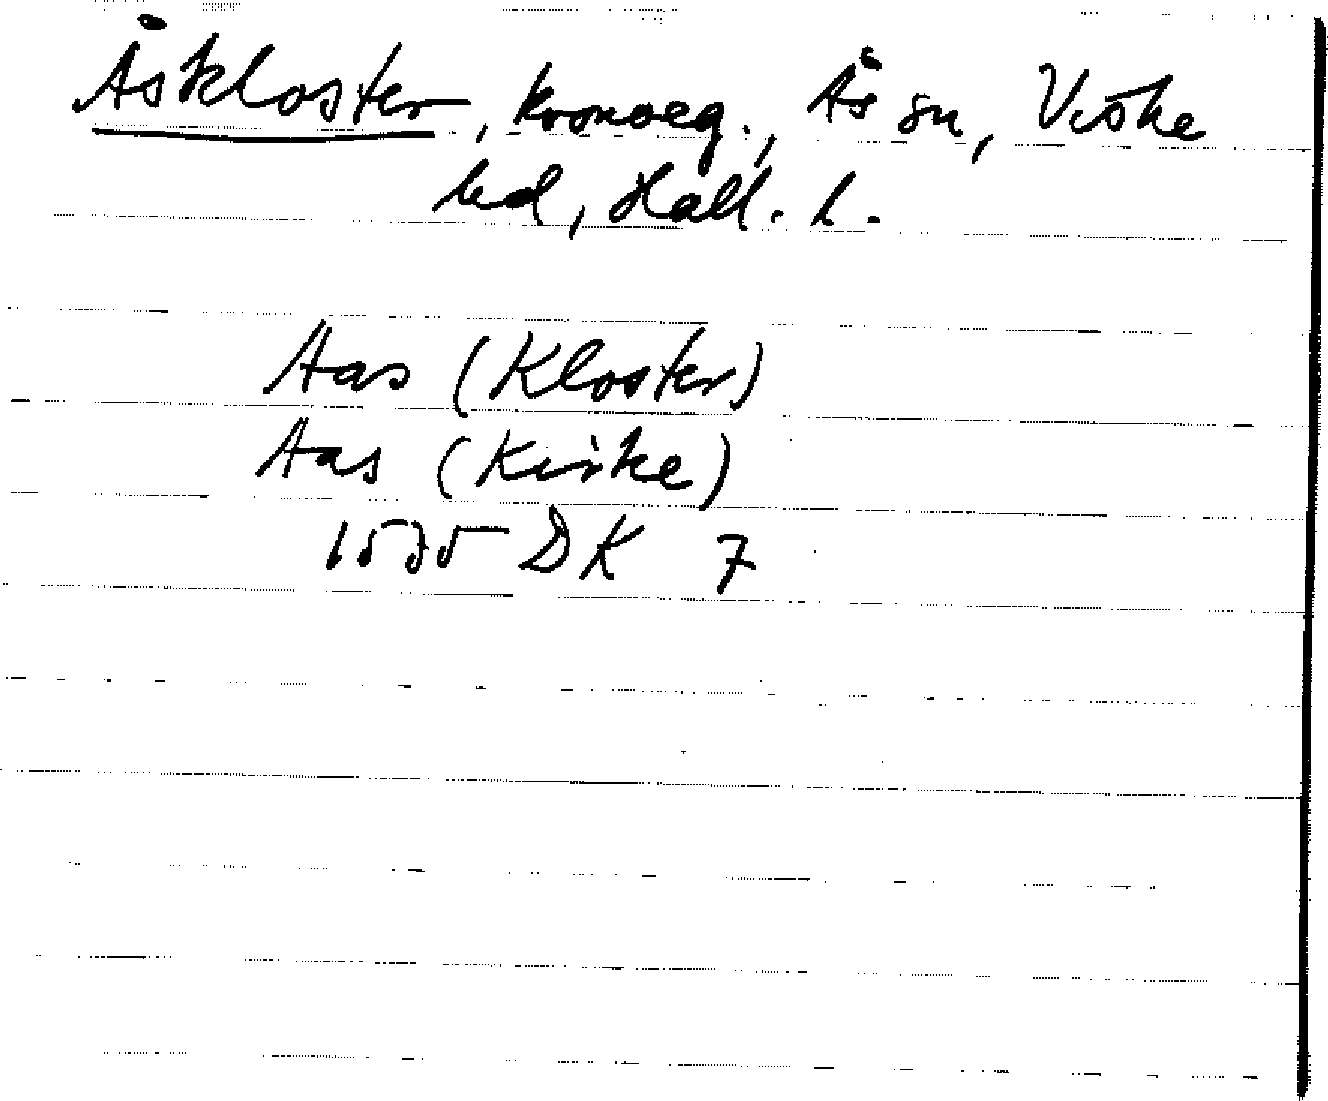 Åskloster, kronoeg., Ås sn, Viske
hd, Hall. l.
Aas (Kloster)
Aas (Kirke)
1575 DK 7